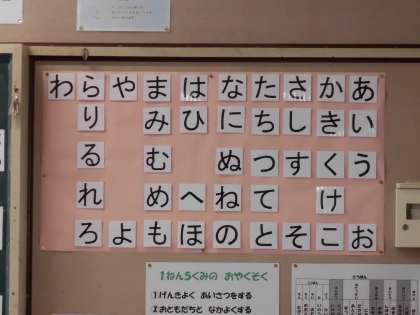 あいうお
かきくけこ
さしすそ
たちつてと
なにぬねの
はひへほ
まみむめも
やよ
らりるれろ
わ
1ねん5くみの おやくそく
1げんきよく あいさつをする
2おともだちと なかよくする